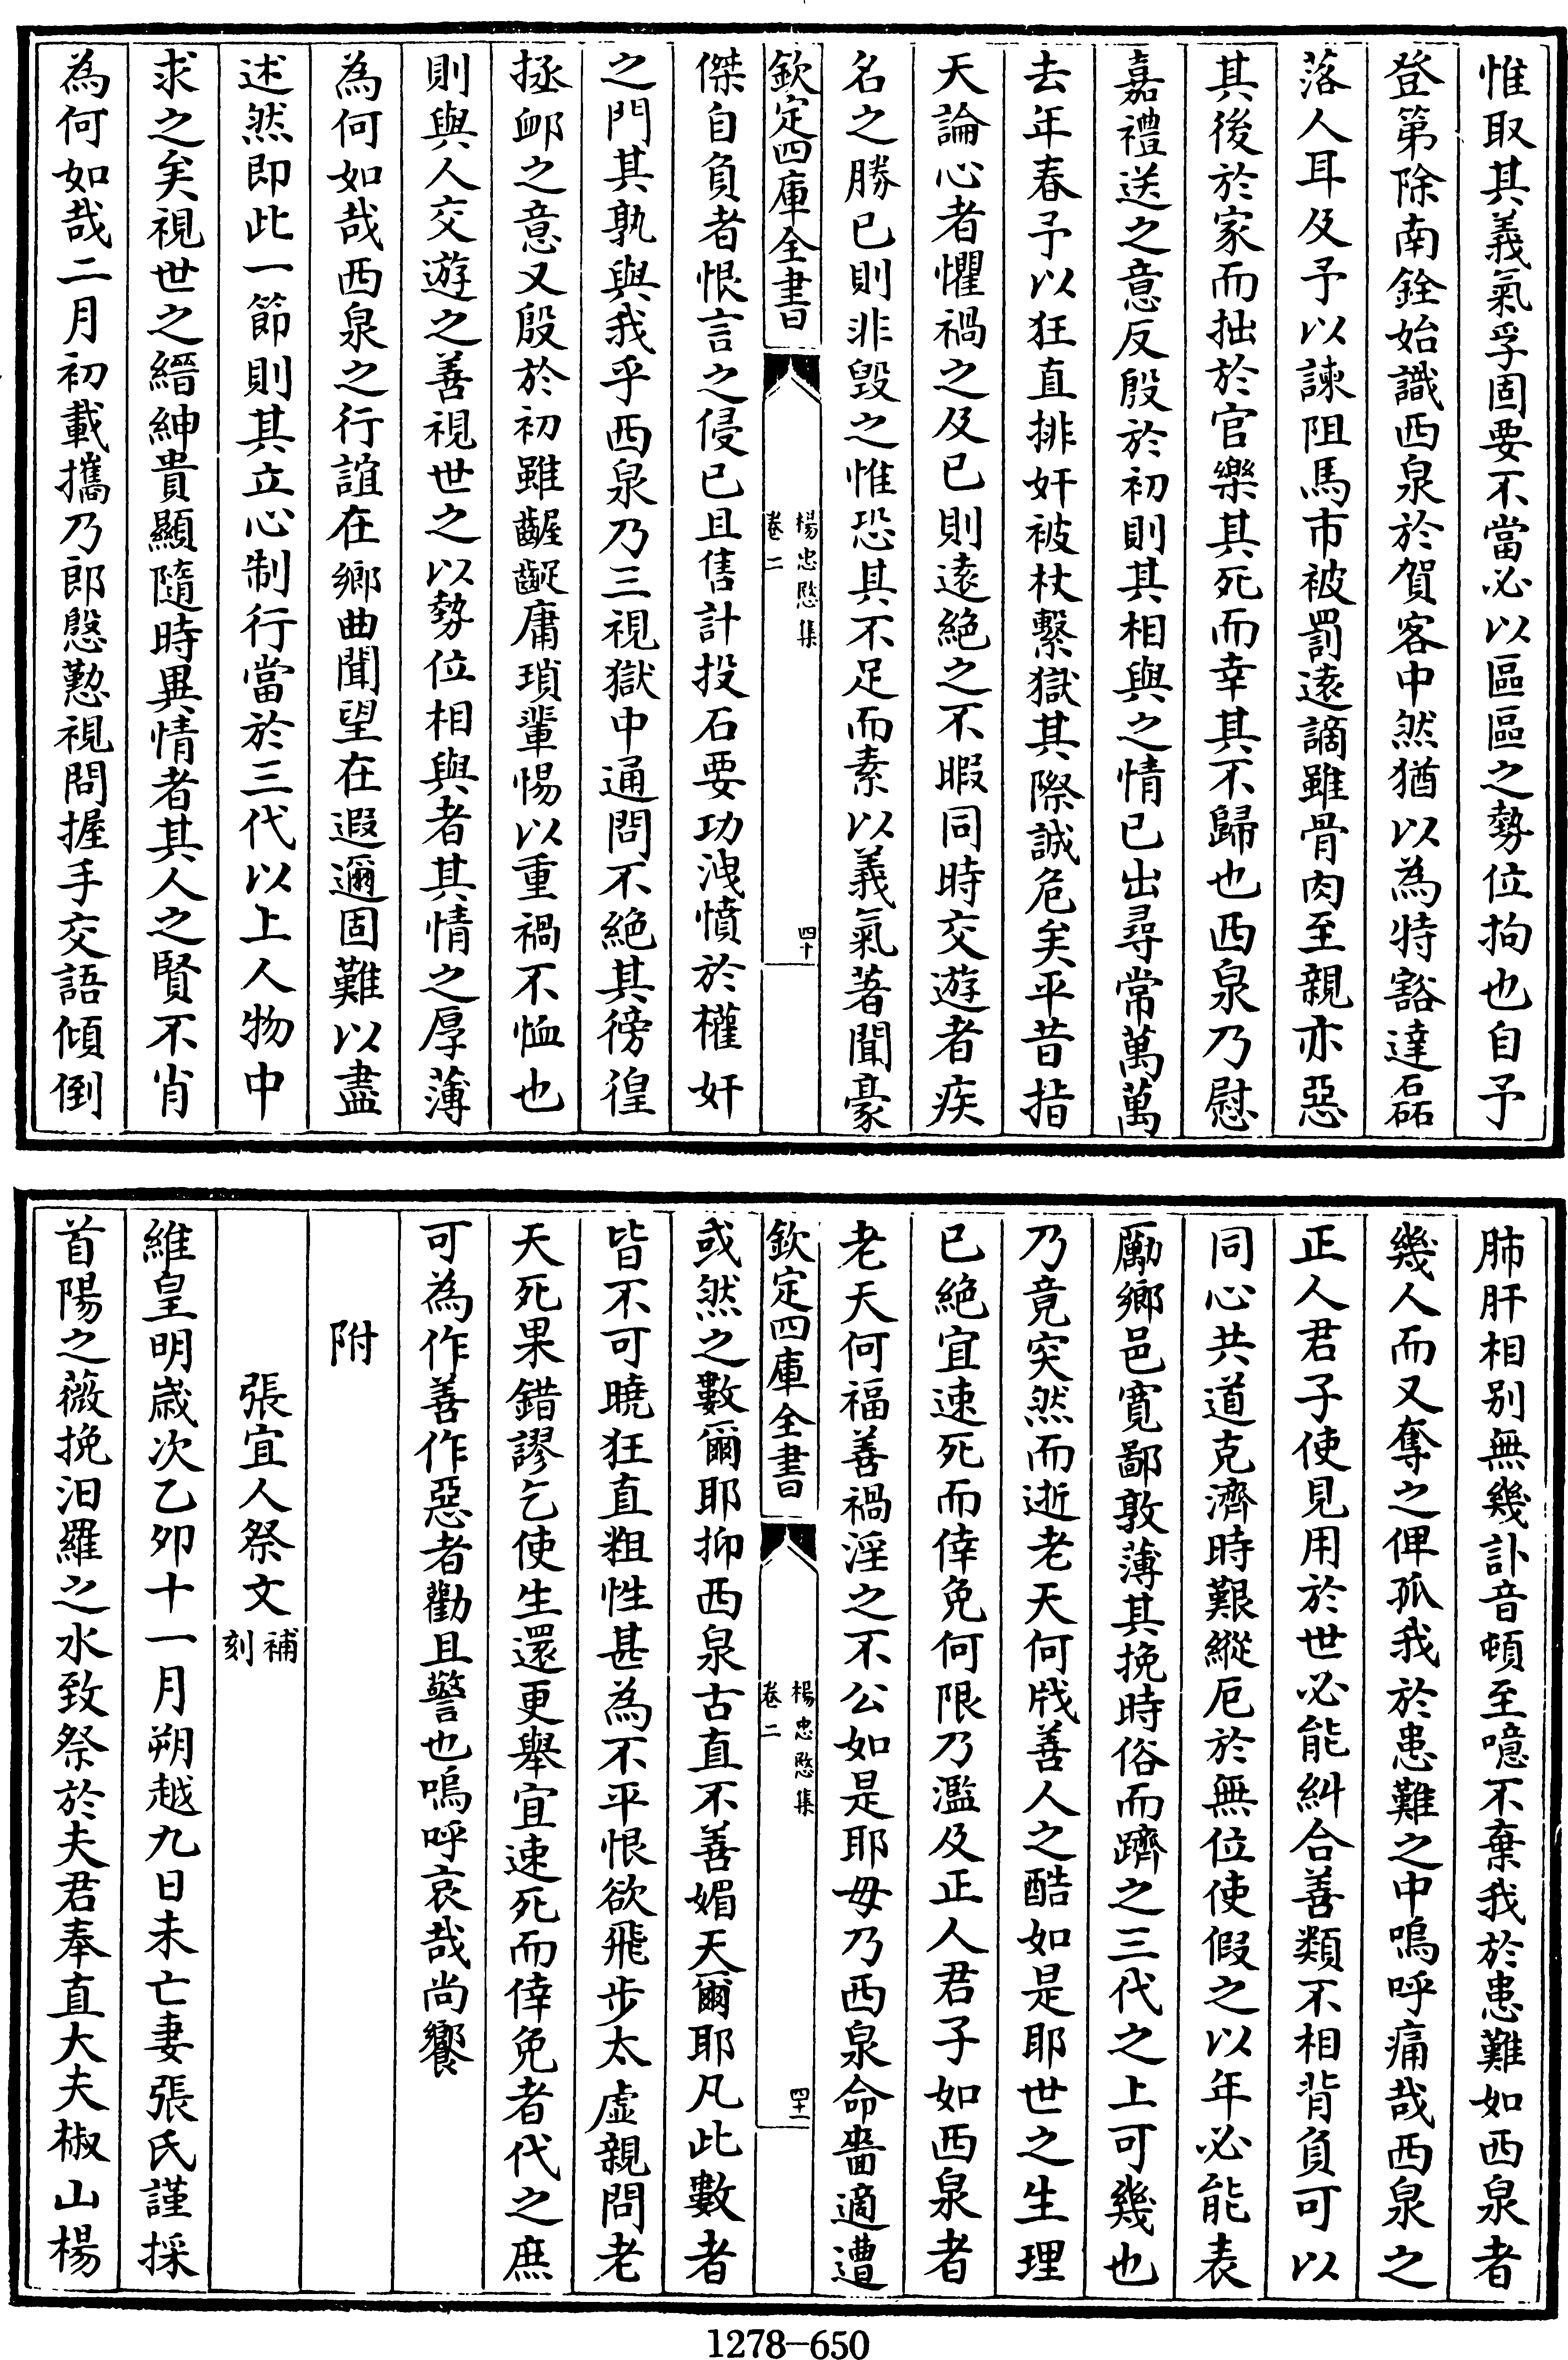 惟取其義氣孚固要不當必以區區之勢位拘也自予
登第除南銓始識西泉於賀客中然猶以為特豁達磊
落人耳及予以諫阻馬市被罰遠謫雖骨肉至親亦惡
其後於家而拙於官樂其死而幸其不歸也西泉乃慰
嘉禮送之意反殷於初則其相與之情已出尋常萬萬
去年春予以狂直排奸被杖繫獄其際誠危矣平昔指
天論心者懼禍之及已則遠絕之不暇同時交遊者疾
名之勝已則非毀之惟恐其不足而素以義氣著聞豪
欽定四庫全書
楊忠愍集
卷二
四十
傑自負者恨言之侵已且售計投石要功洩憤於權奸
之門其孰與我乎西泉乃三視獄中通問不絕其徬徨
拯卹之意又殷於初雖齷齪庸瑣輩惕以重禍不恤也
則與人交遊之善視世之以勢位相與者其情之厚薄
為何如哉西泉之行誼在鄉曲聞望在遐邇固難以盡
述然即此一節則其立心制行當於三代以上人物中
求之矣視世之縉紳貴顯隨時異情者其人之賢不肖
為何如哉二月初載攜乃郎慇懃視問握手交語傾倒
肺肝相別無幾訃音頓至噫不棄我於患難如西泉者
幾人而又奪之俾孤我於患難之中嗚呼痛哉西泉之
正人君子使見用於世必能糾合善類不相背負可以
同心共道克濟時艱縱厄於無位使假之以年必能表
勵鄉邑寬鄙敦薄其挽時俗而躋之三代之上可幾也
乃竟突然而逝老天何戕善人之酷如是耶世之生理
已絕宜速死而倖免何限乃濫及正人君子如西泉者
老天何福善禍淫之不公如是耶毋乃西泉命嗇適遭
欽定四庫全書
楊忠愍集
卷二
四十一
或然之數爾耶抑西泉古直不善媚天爾耶凡此數者
皆不可曉狂直粗性甚為不平恨欲飛步太虛親問老
天死果錯謬乞使生還更舉宜速死而倖免者代之庶
可為作善作惡者勸且警也嗚呼哀哉尚饗
附
張宜人祭文補刻
維皇明歲次乙卯十一月朔越九日未亡妻張氏謹採
首陽之薇挽汨羅之水致祭於夫君奉直大夫椒山楊
1278-650